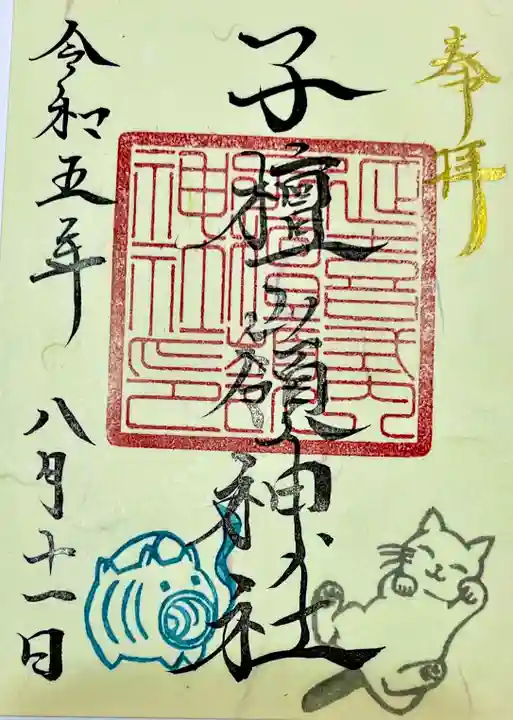 奉拝
子檀嶺神社
令和五年
八月十一日